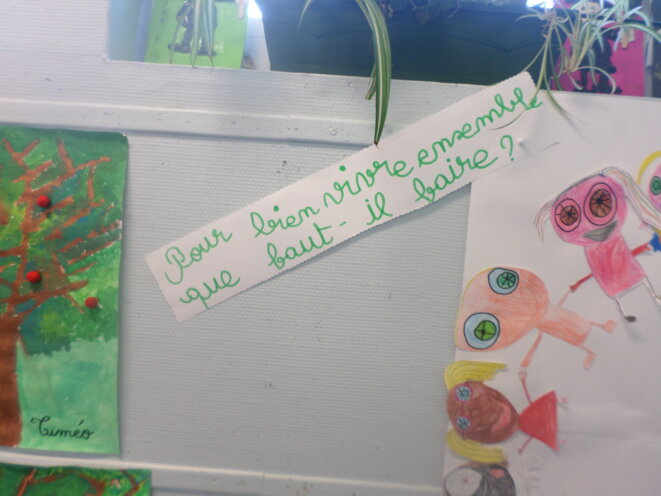 Pour bien vivre ensemble
que faut-il faire ?
Timéo